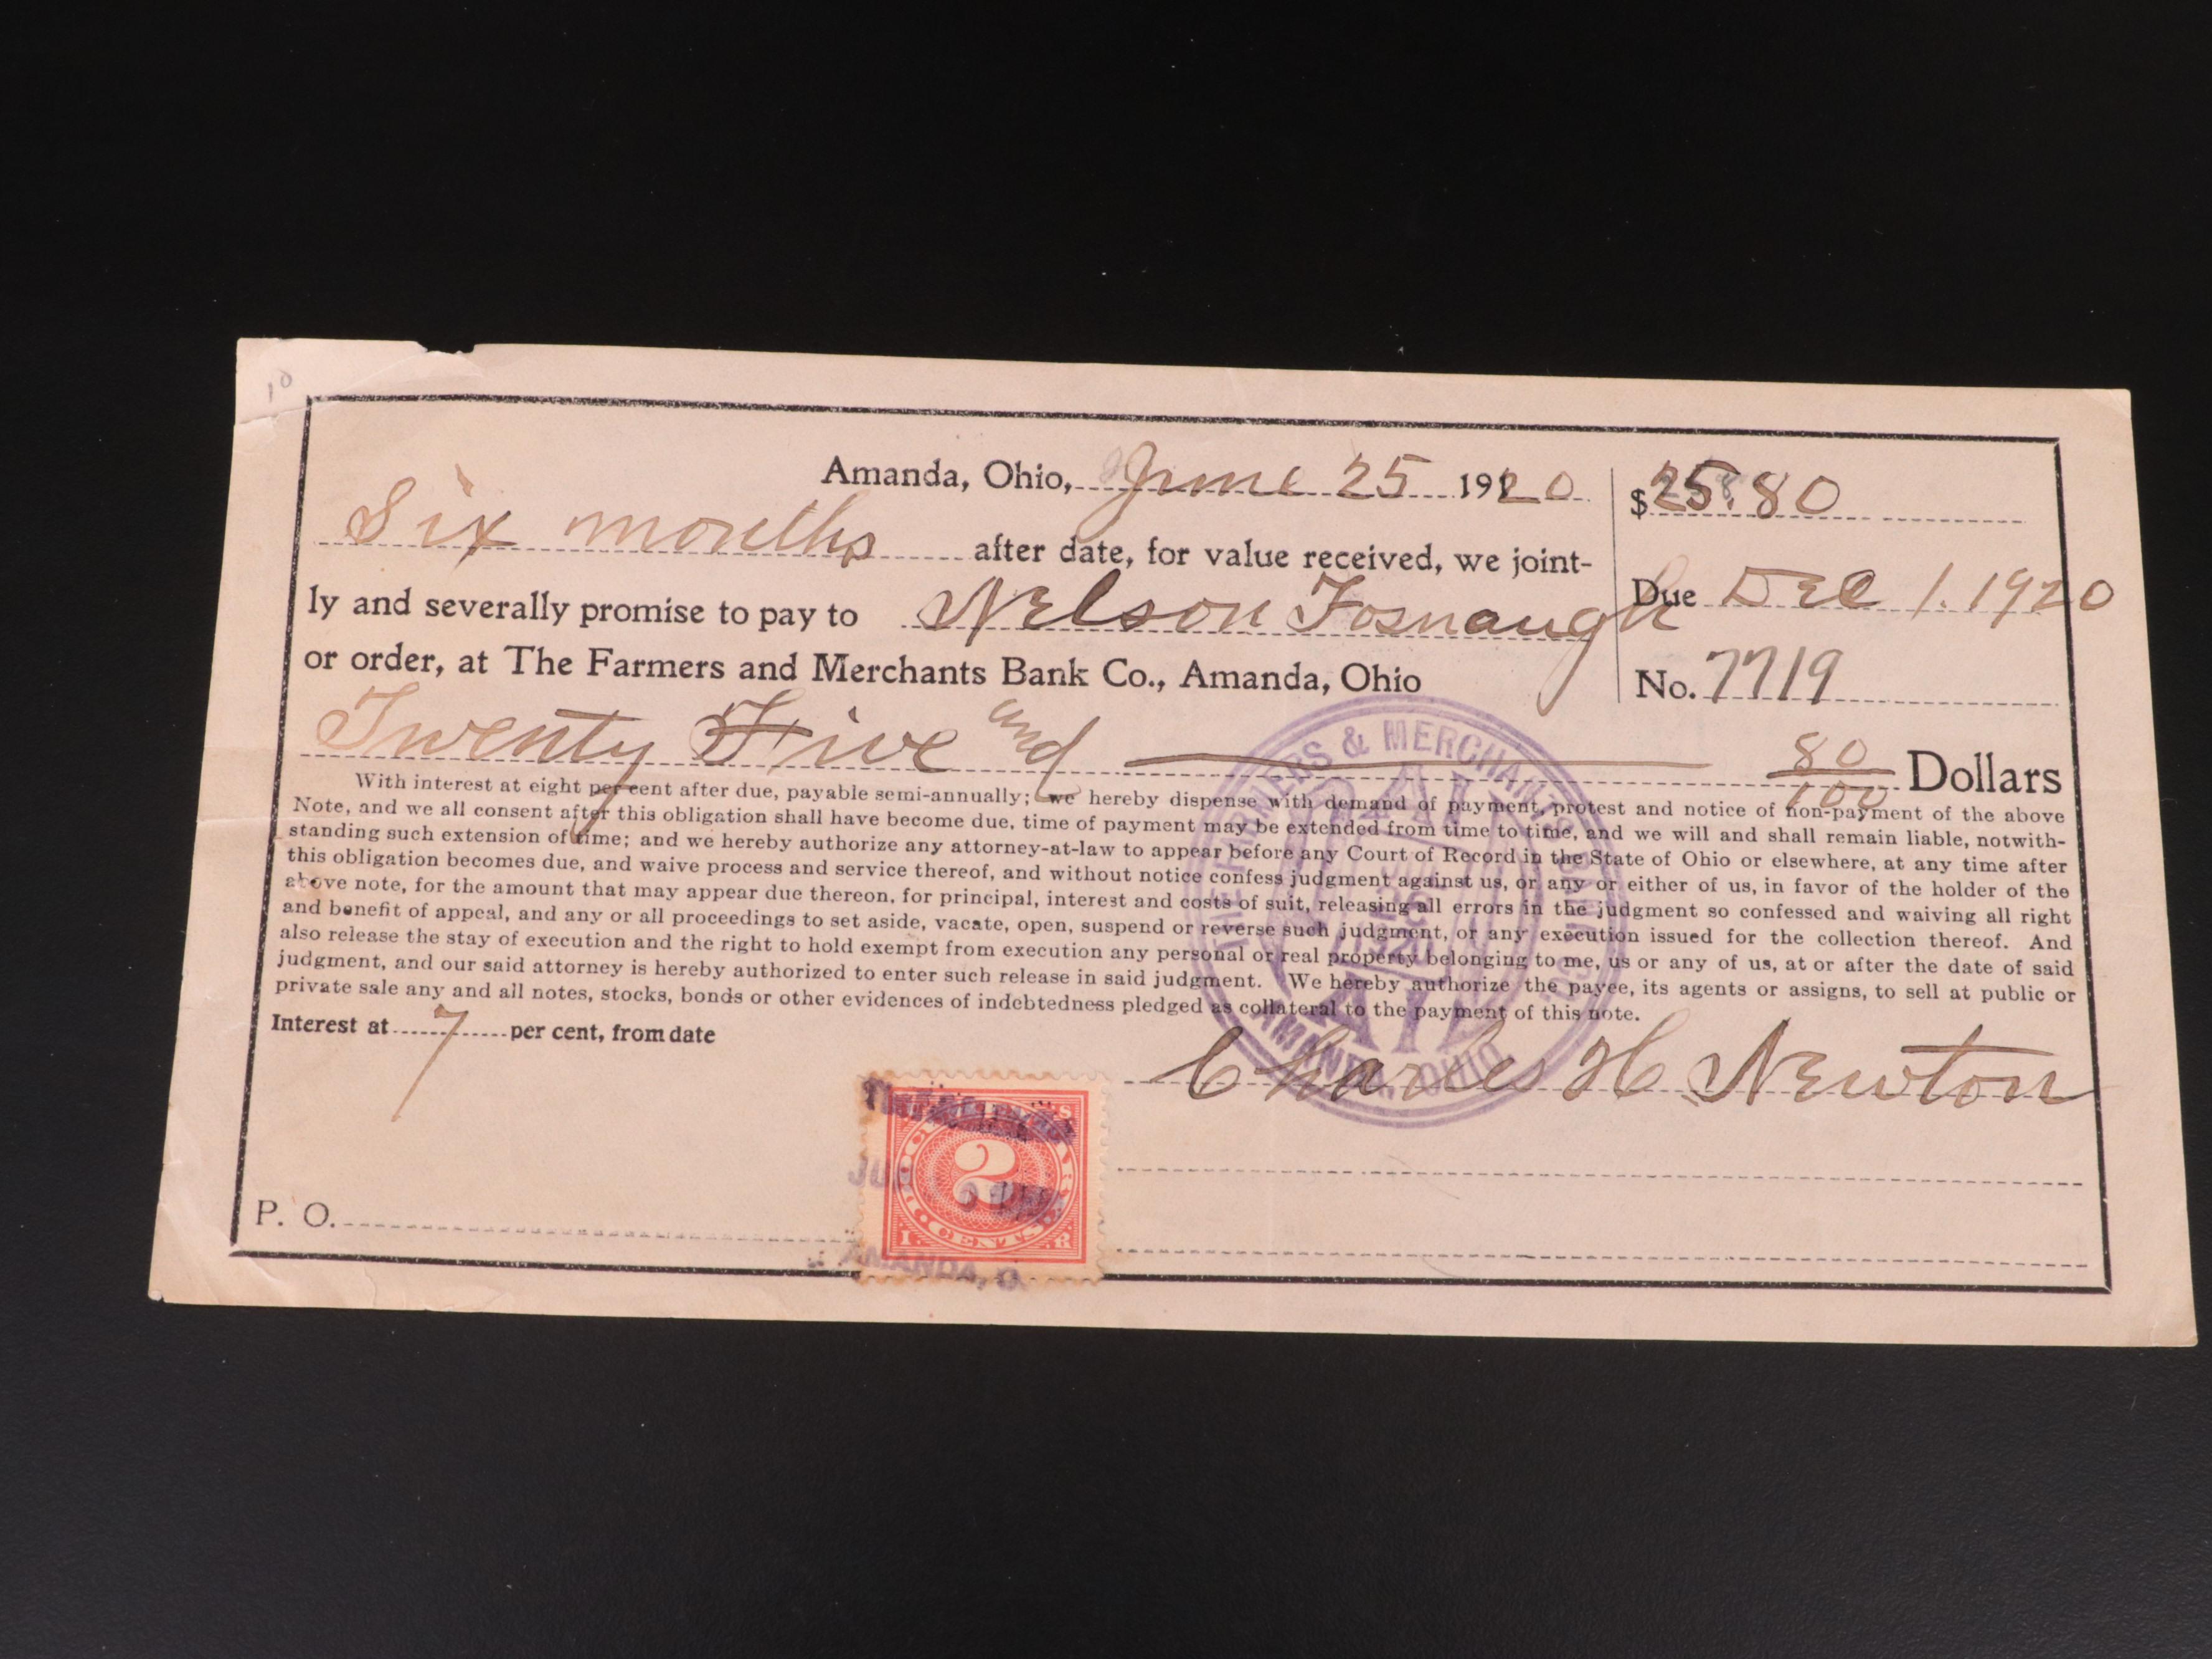 10
Amanda, Ohio, June 25 1920
$25.80
Six months after date, for value received, we joint-
Due Dec 1. 1920
ly and severally promise to pay to Nelson Fosnaugh
or order, at The Farmers and Merchants Bank Co., Amanda, Ohio
No. 7719
Twenty Five and 80/100 Dollars
With interest at eight per cent after due, payable semi-annually; we hereby dispense with demand of payment, protest and notice of non-payment of the above
Note, and we all consent after this obligation shall have become due, time of payment may be extended from time to time, and we will and shall remain liable, notwith-
standing such extension of time; and we hereby authorize any attorney-at-law to appear before any Court of Record in the State of Ohio or elsewhere, at any time after
this obligation becomes due, and waive process and service thereof, and without notice confess judgment against us, or any or either of us, in favor of the holder of the
above note, for the amount that may appear due thereon, for principal, interest and costs of suit, releasing all errors in the judgment so confessed and waiving all right
and benefit of appeal, and any or all proceedings to set aside, vacate, open, suspend or reverse such judgment, or any execution issued for the collection thereof. And
also release the stay of execution and the right to hold exempt from execution any personal or real property belonging to me, us or any of us, at or after the date of said
judgment, and our said attorney is hereby authorized to enter such release in said judgment. We hereby authorize the payee, its agents or assigns, to sell at public or
private sale any and all notes, stocks, bonds or other evidences of indebtedness pledged as collateral to the payment of this note.
Interest at 7 per cent, from date
THE FARMERS & MERCHANTS
PAID
AMANDA, OHIO
Charles H Newton
2
CENTS
I R
AMANDA, O.
P. O.